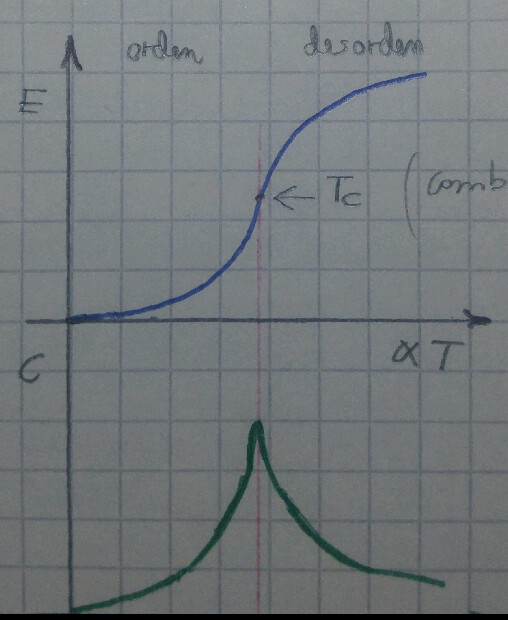 orden desorden
E
← Tc (Comb
C
∝ T